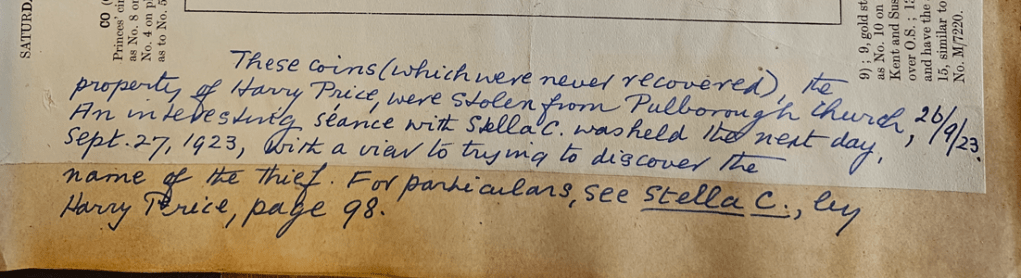 SATURD
CO
Princes' cir
as No. 8 or
No. 4 on p
as to No. 5
9) ; 9, gold st
as No. 10 on
Kent and Sus
over O.S. ; 1
and have the
15, similar to
No. M/7220.
These coins (which were never recovered), the
property of Harry Price, were stolen from Pulborough Church, 26/9/23.
An interesting séance with Stella C. was held the next day,
Sept. 27, 1923, with a view to trying to discover the
name of the thief. For particulars, see Stella C., by
Harry Price, page 98.